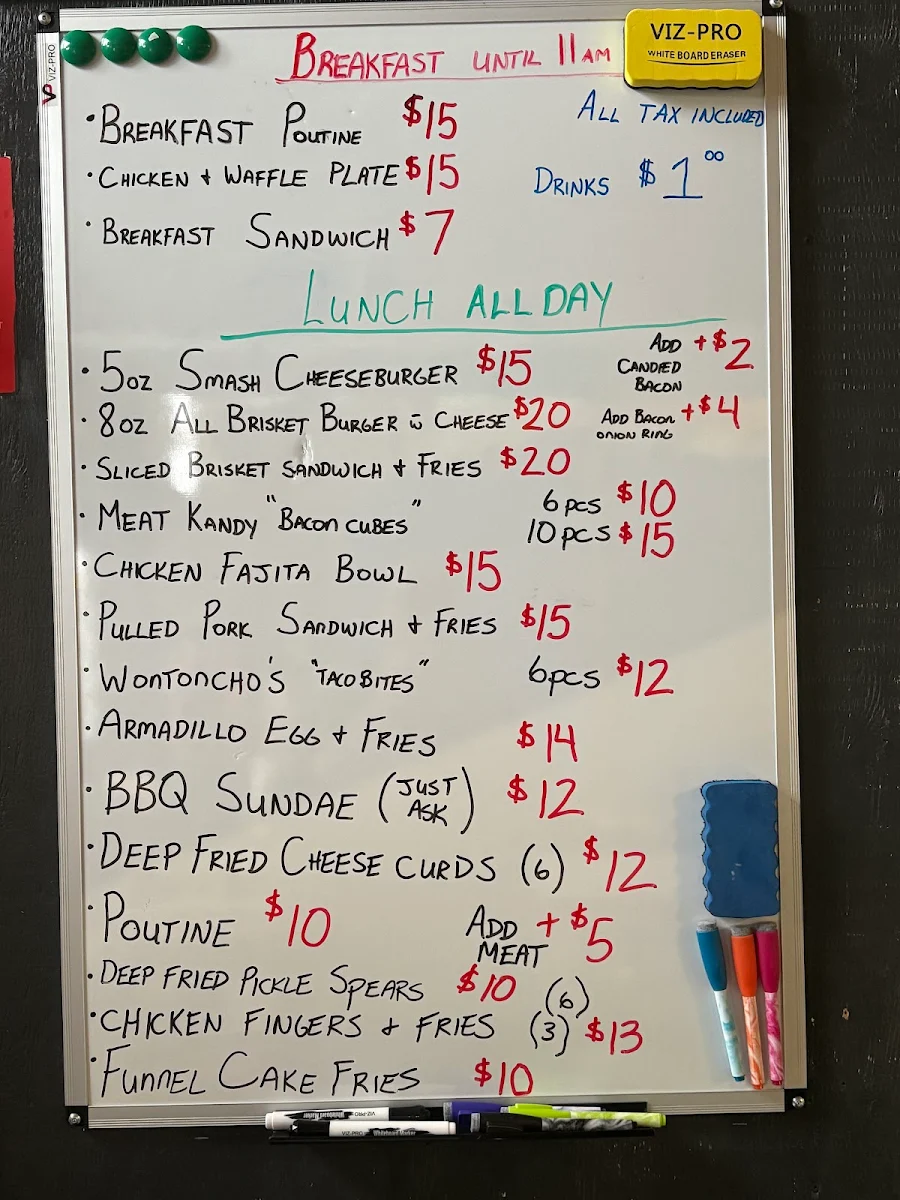 VIZ-PRO
BREAKFAST UNTIL 11AM
VIZ-PRO
WHITE BOARD ERASER
ALL TAX INCLUDED
• BREAKFAST POUTINE $15
• CHICKEN + WAFFLE PLATE $15
DRINKS $1.00
• BREAKFAST SANDWICH $7
LUNCH ALL DAY
• 5oz SMASH CHEESEBURGER $15
ADD CANDIED BACON +$2
• 8oz ALL BRISKET BURGER w CHEESE $20
ADD BACON ONION RING +$4
• SLICED BRISKET SANDWICH + FRIES $20
• MEAT KANDY "BACON CUBES" 6pcs $10
10pcs $15
• CHICKEN FAJITA BOWL $15
• PULLED PORK SANDWICH + FRIES $15
• WONTONCHO'S "TACO BITES" 6pcs $12
• ARMADILLO EGG + FRIES $14
• BBQ SUNDAE (JUST ASK) $12
• DEEP FRIED CHEESE CURDS (6) $12
• POUTINE $10 ADD MEAT +$5
• DEEP FRIED PICKLE SPEARS $10 (6)
• CHICKEN FINGERS + FRIES (3) $13
• FUNNEL CAKE FRIES $10
VIZ-PRO Whiteboard Marker
VIZ-PRO Whiteboard Marker